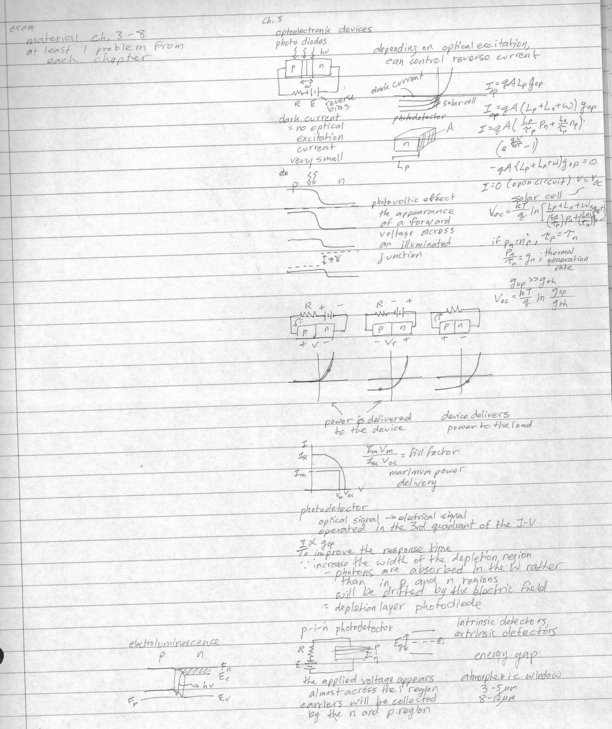 exam
material Ch. 3-8
at least 1 problem from
each chapter
Ch. 8
optoelectronic devices
photodiodes
hν
p n
W
R E reverse
bias
dark current
= no optical
excitation
current
very small
depending on optical excitation,
can control reverse current
dark current
solar cell
photodetector
A
n
Lp
I = qALp gop
op
Iop = qA(Lp+Ln+W)gop
I = qA(Lp/τp Pn + Ln/τn np)
-qA(Lp+Ln+W)gop = 0
I=0 (open circuit) V=Voc
solar cell
Voc = kT/q ln
if Pn=np, τp=τn
Pn/τn = gn, thermal
generation
rate
gop >> gth
Voc = kT/q ln gop/gth
p n
photovoltic effect
th appearance
of a forward
voltage across
an illuminated
junction
R + -
p n
+ V -
R - +
p n
- Vp +
R
p n
+ -
power is delivered
to the device
device delivers
power to the load
I
Isc
Im
Vm Voc
V
ImVm/IscVoc = fill factor
maximum power
delivery
photodetector
optical signal → electrical signal
operated in the 3rd quadrant of the I-V
I ∝ gop
To improve the response time
∵ increase the width of the depletion region
- photons are absorbed in the W rather
than in p and n regions
will be drifted by the electric field
= depletion layer photodiode
p-i-n photodetector
R
E
p
i
n
the applied voltage appears
almost across the i region
carriers will be collected
by the n and p region
intrinsic detectors,
extrinsic detectors
energy gap
atmospheric window
3-5μm
8-12μm
electroluminescence
p n
Fn
Ec
hν
Fp
Ev